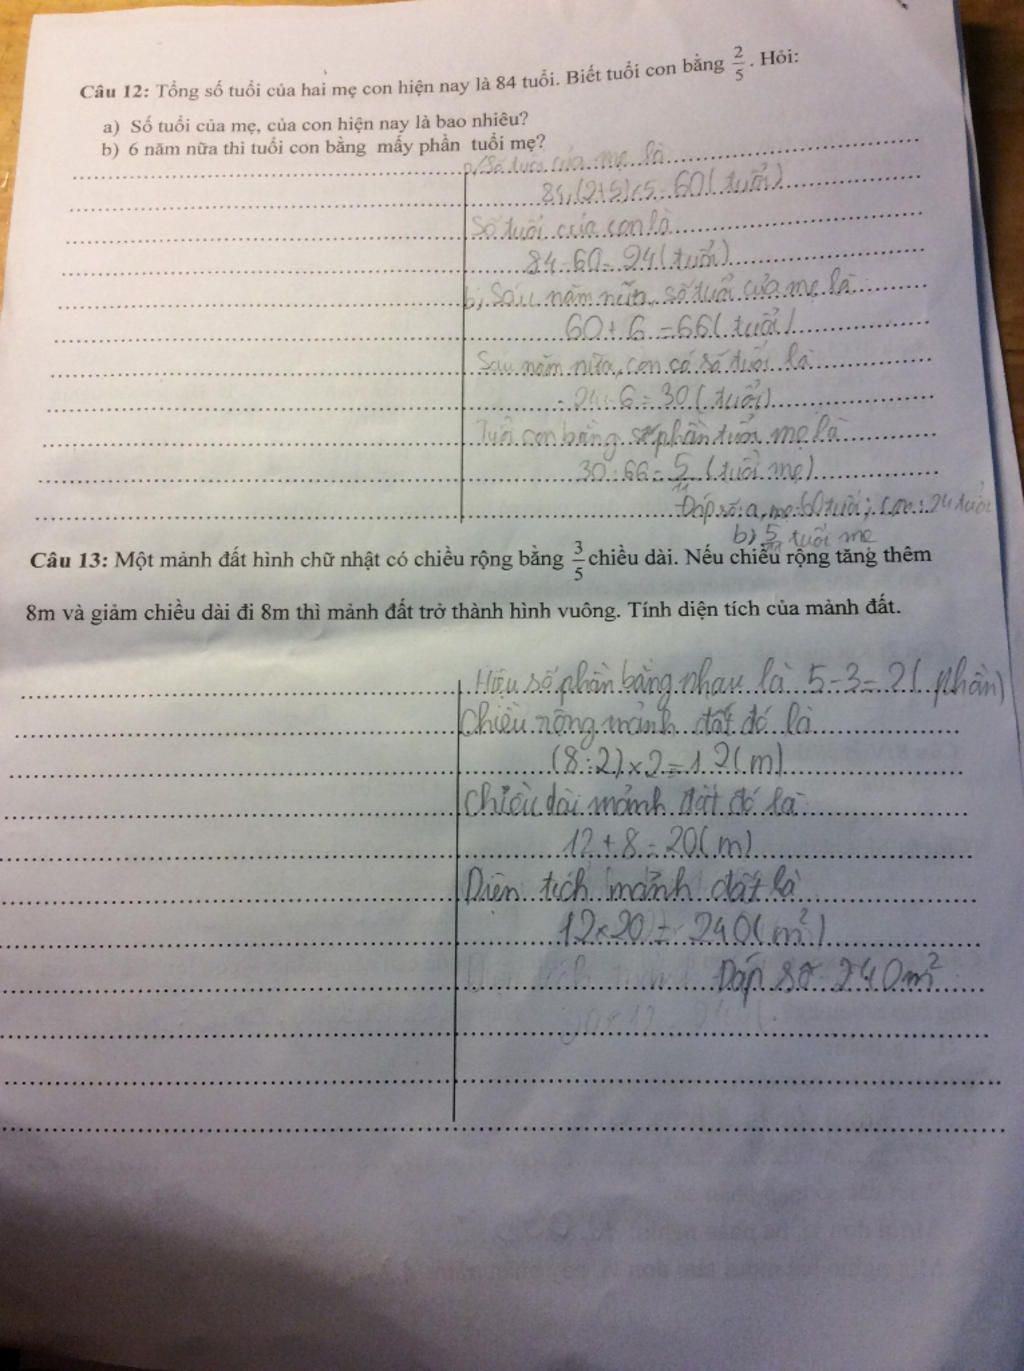 Câu 12: Tổng số tuổi của hai mẹ con hiện nay là 84 tuổi. Biết tuổi con bằng 2/5 . Hỏi:
a) Số tuổi của mẹ, của con hiện nay là bao nhiêu?
b) 6 năm nữa thì tuổi con bằng mấy phần tuổi mẹ?
a, Số tuổi của mẹ là
84:(2+5)×5=60(tuổi)
Số tuổi của con là
84-60=24(tuổi)
b, Sáu năm nữa, số tuổi của mẹ là
60+6=66(tuổi)
Sáu năm nữa, con có số tuổi là
24+6=30(tuổi)
Tuổi con bằng số phần tuổi mẹ là
30:66=5/11(tuổi mẹ)
Đáp số: a, mẹ: 60 tuổi; con: 24 tuổi
b) 5/11 tuổi mẹ
Câu 13: Một mảnh đất hình chữ nhật có chiều rộng bằng 3/5 chiều dài. Nếu chiều rộng tăng thêm
8m và giảm chiều dài đi 8m thì mảnh đất trở thành hình vuông. Tính diện tích của mảnh đất.
Hiệu số phần bằng nhau là 5-3=2(phần)
Chiều rộng mảnh đất đó là
(8:2)×2=12(m)
Chiều dài mảnh đất đó là
12+8=20(m)
Diện tích mảnh đất là
12×20=240(m²)
Đáp số 240m²